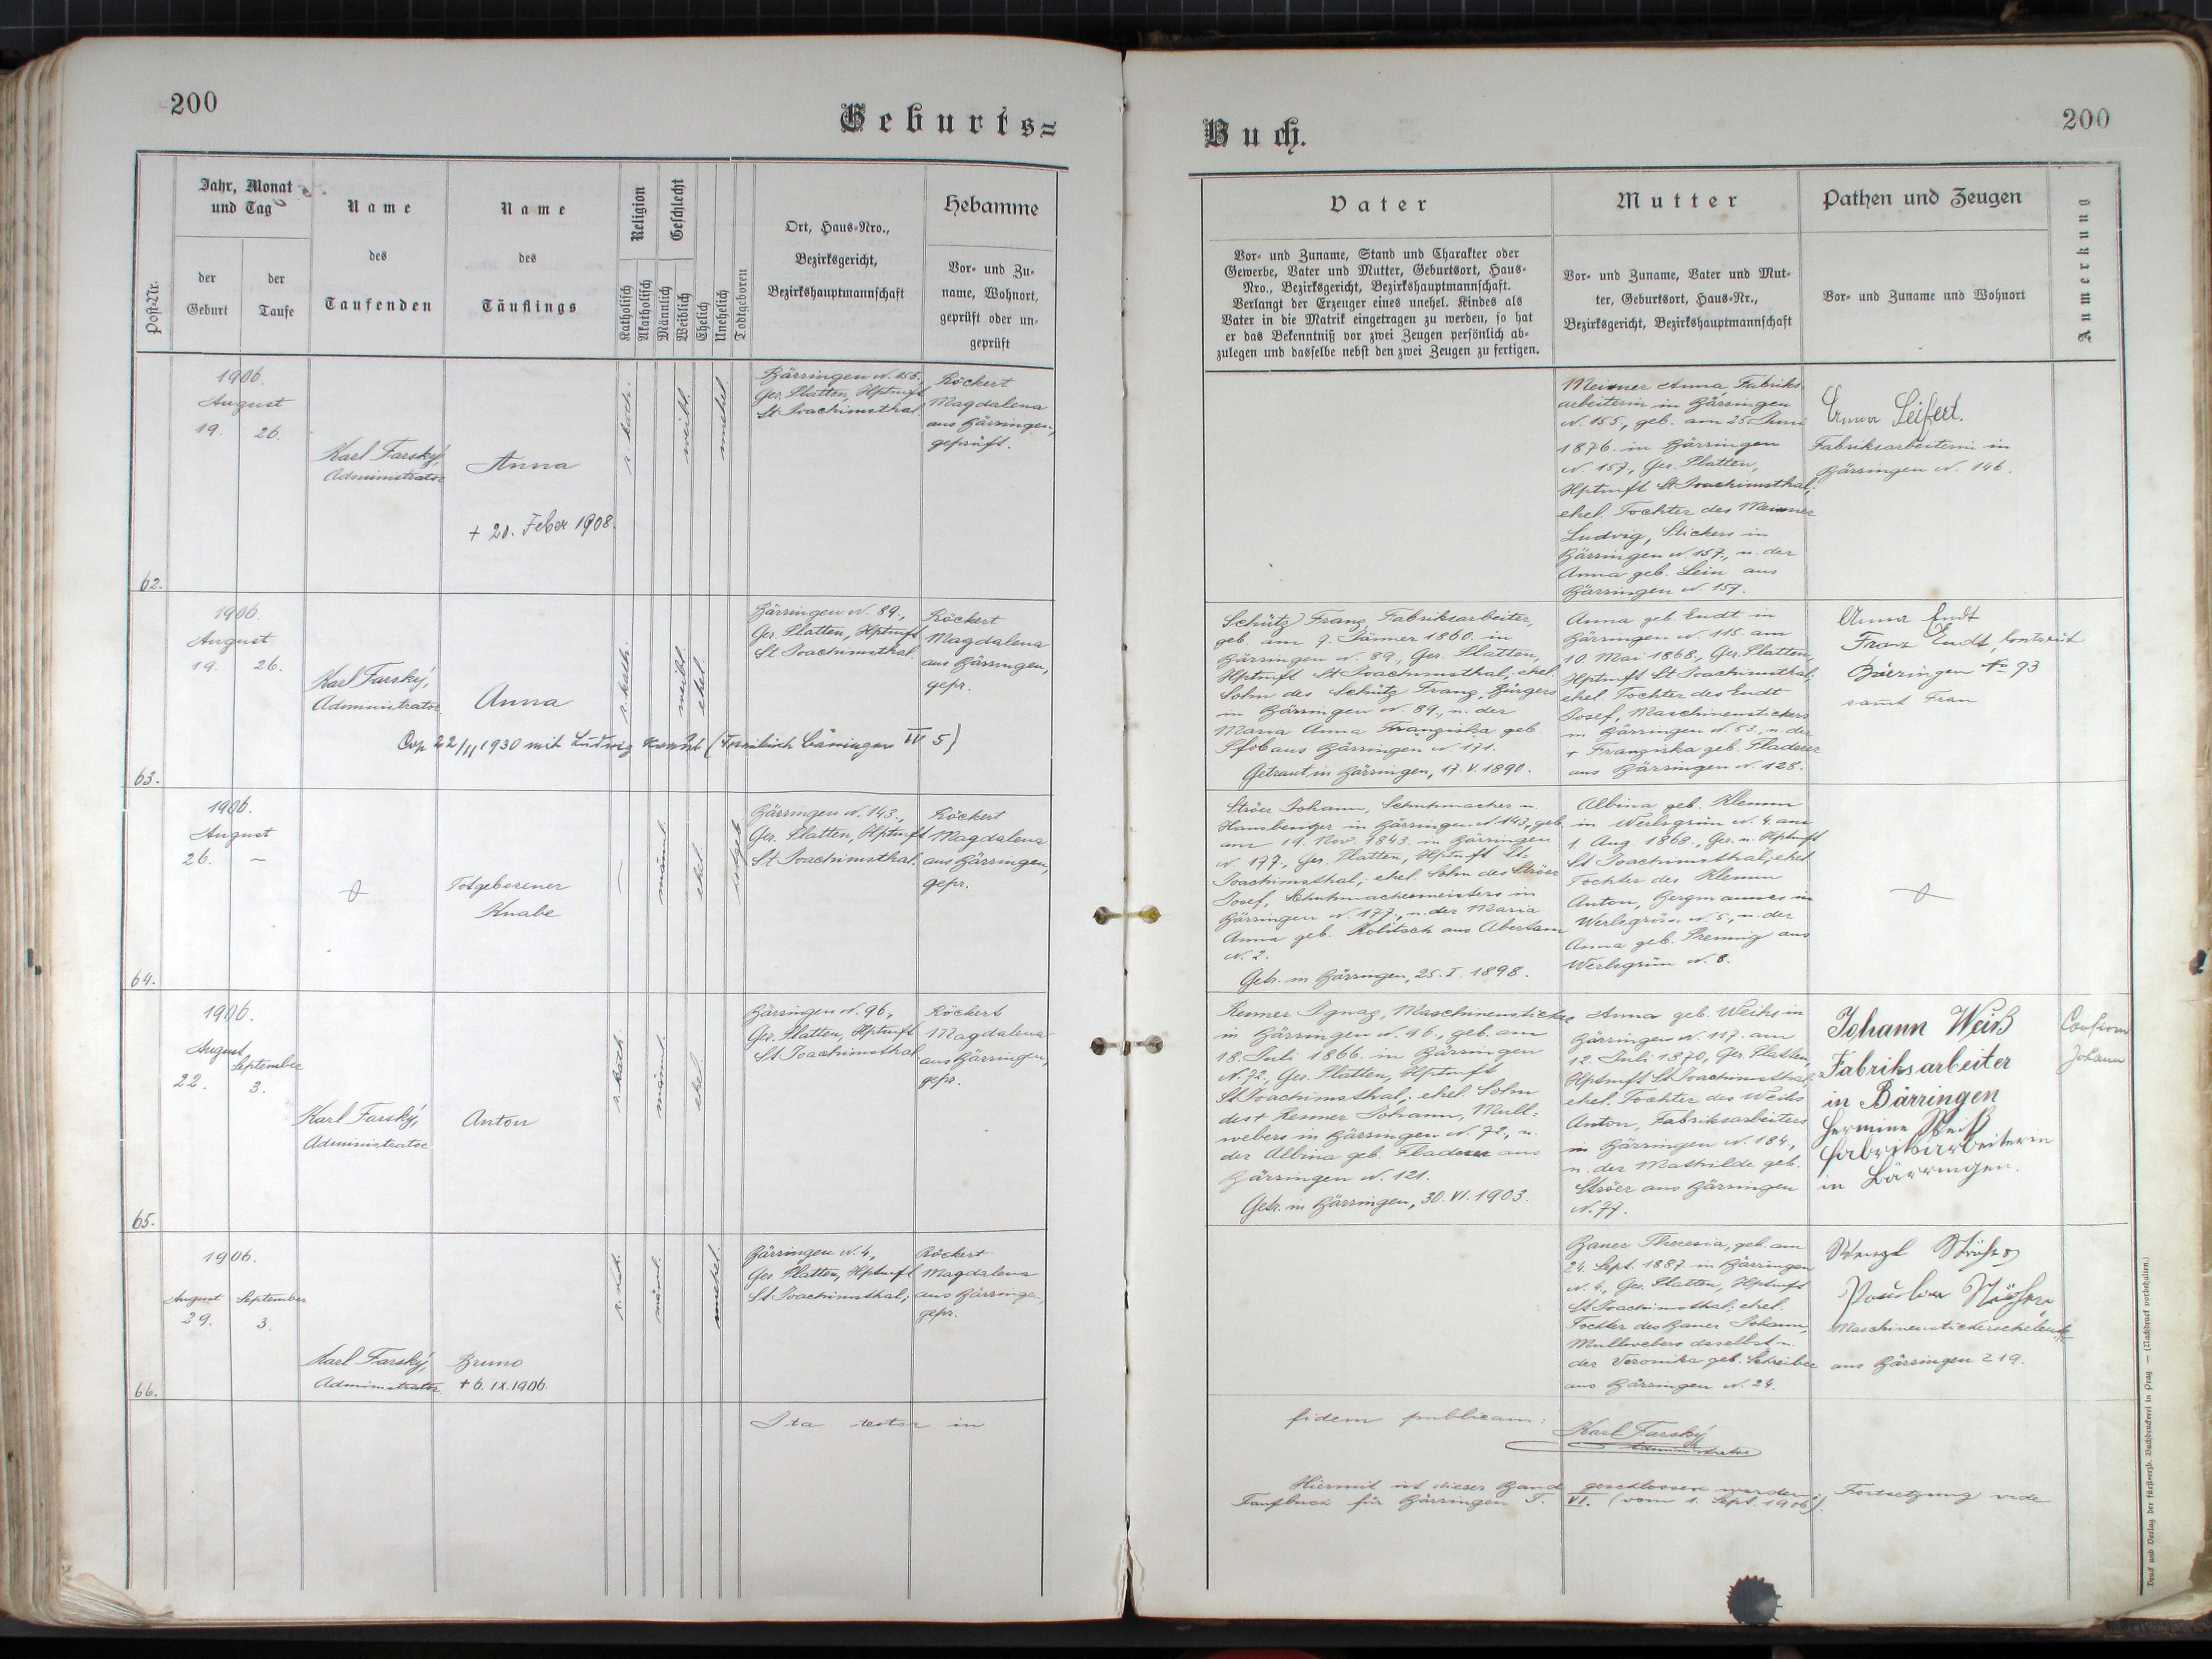 200
Geburts=
Post-Nr.
Jahr, Monat
und Tag
der
Geburt
der
Taufe
Name
des
Taufenden
Name
des
Täuflings
Religion
Katholisch
Akatholisch
Geschlecht
Männlich
Weiblich
Ehelich
Unehelich
Todtgeboren
Ort, Haus-Nro.,
Bezirksgericht,
Bezirkshauptmannschaft
Hebamme
Vor- und Zu-
name, Wohnort,
geprüft oder un-
geprüft
62.
1906.
August
19. 26.
Karl Farský,
Administrator
Anna
+ 20. Feber 1908.
r. kath.
weibl.
unehel.
Bärringen N. 155.,
Ger. Platten, Hptmft
St. Joachimsthal.
Röckert
Magdalena
aus Bärringen,
geprüft.
63.
1906.
August
19. 26.
Karl Farský,
Administrator.
Anna
Cop 22/11 1930 mit Ludwig (Bärringen III 5)
r. kath.
weibl.
ehel.
Bärringen N. 89.,
Ger. Platten, Hptmft
St Joachimsthal.
Röckert
Magdalena
aus Bärringen,
gepr.
64.
1906.
August
26. –
Totgeborener
Knabe
–
männl.
ehel.
totgeb.
Bärringen N. 143.,
Ger. Platten, Hptmft
St Joachimsthal.
Röckert
Magdalena
aus Bärringen,
gepr.
65.
1906.
August
September
22. 3.
Karl Farský,
Administrator
Anton
r. kath.
männl.
ehel.
Bärringen N. 96,
Ger. Platten, Hptmft
St Joachimsthal
Röckert
Magdalena
aus Bärringen,
gepr.
66.
1906.
August September
29. 3.
Karl Farský,
Administrator.
Bruno
+ 6. IX. 1906.
r. kath.
männl.
unehel.
Bärringen N. 4,
Ger. Platten, Hptmft
St Joachimsthal;
Röckert
Magdalena
aus Bärringen,
gepr.
Ita testor in
Buch.
200
Vater
Vor- und Zuname, Stand und Charakter oder
Gewerbe, Vater und Mutter, Geburtsort, Haus-
Nro., Bezirksgericht, Bezirkshauptmannschaft.
Verlangt der Erzeuger eines unehel. Kindes als
Vater in die Matrik eingetragen zu werden, so hat
er das Bekenntniß vor zwei Zeugen persönlich ab-
zulegen und dasselbe nebst den zwei Zeugen zu fertigen.
Mutter
Vor- und Zuname, Vater und Mut-
ter, Geburtsort, Haus-Nr.,
Bezirksgericht, Bezirkshauptmannschaft
Pathen und Zeugen
Vor- und Zuname und Wohnort
Anmerkung
Meixner Anna, Fabriks-
arbeiterin in Bärringen
N. 155., geb. am 25. Juni
1876. in Bärringen
N. 157., Ger. Platten,
Hptmft St Joachimsthal;
ehel. Tochter des Meixner
Ludwig, Stickers in
Bärringen N. 157., u. der
Anna geb. Lein aus
Bärringen N. 157.
Anna Seifert.
Fabriksarbeiterin in
Bärringen N. 146.
Schütz Franz, Fabriksarbeiter,
geb. am 9. Jänner 1860. in
Bärringen N. 89., Ger. Platten,
Hptmft St Joachimsthal, ehel.
Sohn des Schütz Franz, Bürgers
in Bärringen N. 89., u. der
Maria Anna Franziska geb.
Pfob aus Bärringen N. 171.
Getraut in Bärringen, 17. V. 1890.
Anna geb. Endt in
Bärringen N. 115. am
10. Mai 1868., Ger. Platten,
Hptmft St Joachimsthal,
ehel. Tochter des Endt
Josef, Maschinenstickers
in Bärringen N. 53., u. der
+ Franziska geb. Fladerer
aus Bärringen N. 128.
Anna Endt
Franz Endt, Kontorist
Bärringen No 93
samt Frau
Ströer Johann, Schuhmacher u.
Hausbesitzer in Bärringen N. 143, geb.
am 19. Nov. 1843. in Bärringen
N. 177., Ger. Platten, Hptmft St.
Joachimsthal; ehel. Sohn des Ströer
Josef, Schuhmachermeisters in
Bärringen N. 177., u. der Maria
Anna geb. Kolitsch aus Abertam
N. 2.
Getr. in Bärringen, 25. I. 1898.
Albina geb. Klemm
in Werlsgrün N. 4. am
1. Aug. 1868., Ger. u. Hptmft
St Joachimsthal; ehel.
Tochter des Klemm
Anton, Bergmannes in
Werlsgrün N. 5., u. der
Anna geb. Prennig aus
Werlsgrün N. 8.
Renner Ignaz, Maschinensticker
in Bärringen N. 46., geb. am
18. Juli 1866. in Bärringen
N. 72., Ger. Platten, Hptmft
St Joachimsthal, ehel. Sohn
des + Renner Johann, Mull-
webers in Bärringen N. 72., u.
der Albina geb. Fladerer aus
Bärringen N. 121.
Getr. in Bärringen, 30. VI. 1903.
Anna geb. Weihs in
Bärringen N. 117. am
12. Juli 1870, Ger. Platten,
Hptmft St Joachimsthal;
ehel. Tochter des Weihs
Anton, Fabriksarbeiters
in Bärringen N. 184,
u. der Mathilde geb.
Ströer aus Bärringen
N. 77.
Johann Weiß
Fabriksarbeiter
in Bärringen
Hermine Weiß
Fabriksarbeiterin
in Bärringen.
Confirm
Johann
Baner Theresia, geb. am
24. Sept. 1887 in Bärringen
N. 4., Ger. Platten, Hptmft
St Joachimsthal; ehel.
Tochter des Baner Johann,
Mullwebers daselbst u.
der Veronika geb. Schreiber
aus Bärringen N. 24.
Wenzl
Maschinenstickerseheleute
aus Bärringen 219.
fidem publicam:
Karl Farský
Administrator
Hiermit ist dieser Band geschlossen worden; Fortsetzung vide
Taufbuch für Bärringen T. VI. (vom 1. Sept. 1906).
Druck und Verlag der fürsterzb. Buchdruckerei in Prag — (Nachdruck vorbehalten.)